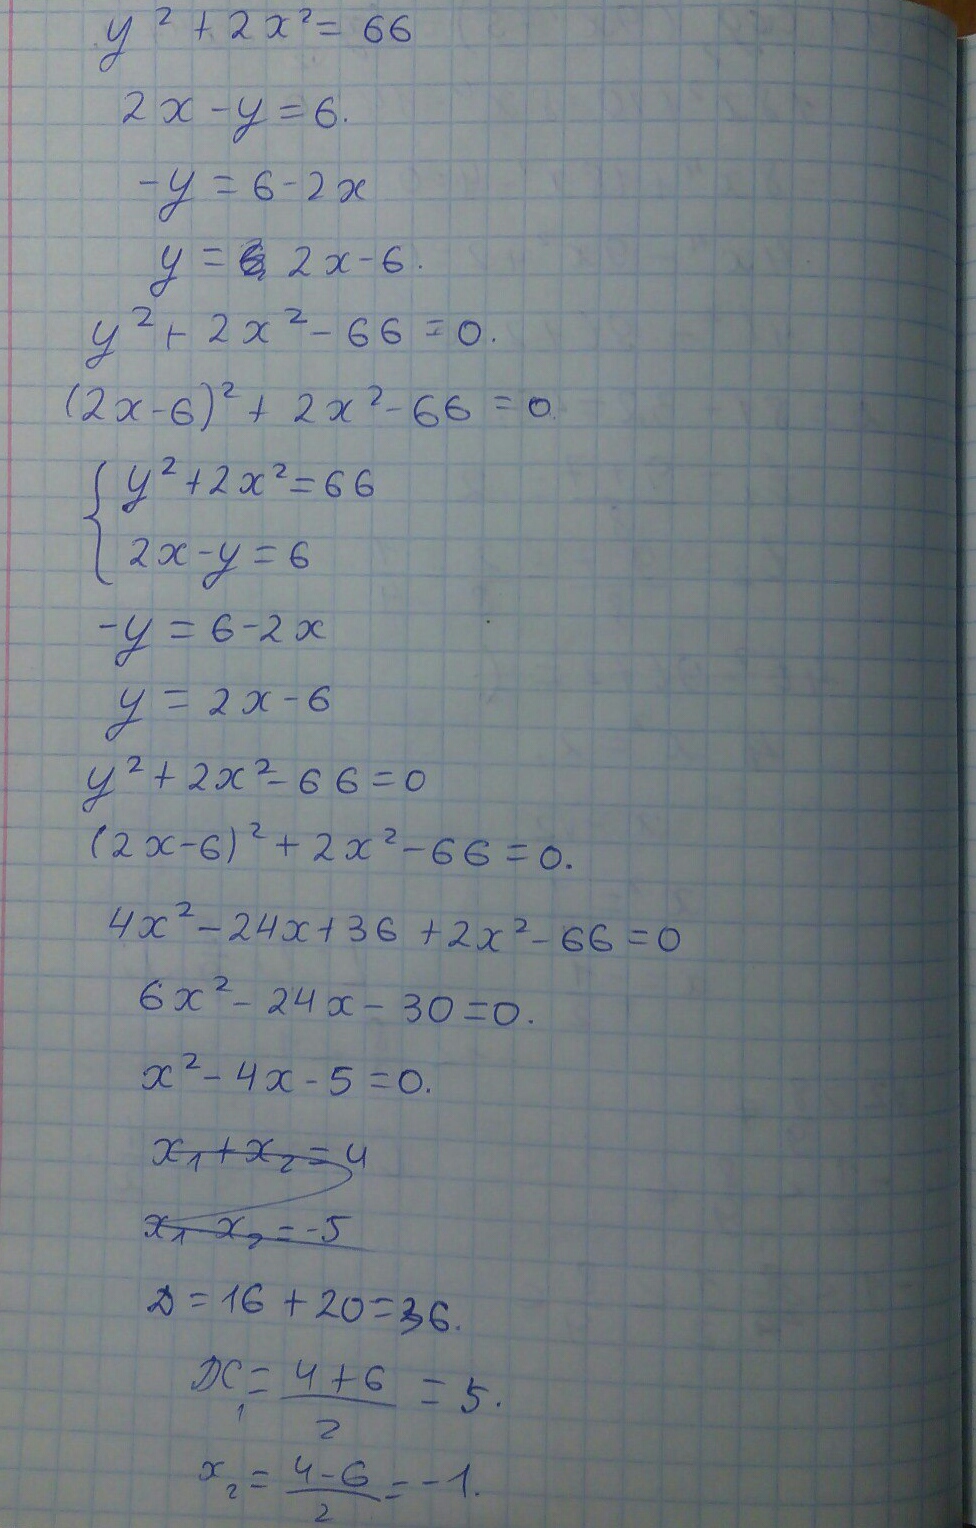 y² + 2x² = 66
2x - y = 6.
-y = 6 - 2x
y = 2x - 6.
y² + 2x² - 66 = 0.
(2x - 6)² + 2x² - 66 = 0.
{ y² + 2x² = 66
2x - y = 6
-y = 6 - 2x
y = 2x - 6
y² + 2x² - 66 = 0
(2x - 6)² + 2x² - 66 = 0.
4x² - 24x + 36 + 2x² - 66 = 0
6x² - 24x - 30 = 0.
x² - 4x - 5 = 0.
x₁ + x₂ = 4
x₁ x₂ = -5
D = 16 + 20 = 36.
x₁ = (4 + 6)/2 = 5.
x₂ = (4 - 6)/2 = -1.